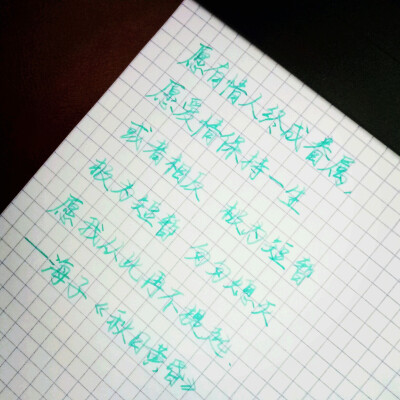 愿有情人终成眷属,
愿爱情保持一生
或者相反 极为短暂
极为短暂 匆匆熄灭
愿我从此再不提起.
——海子《秋日黄昏》